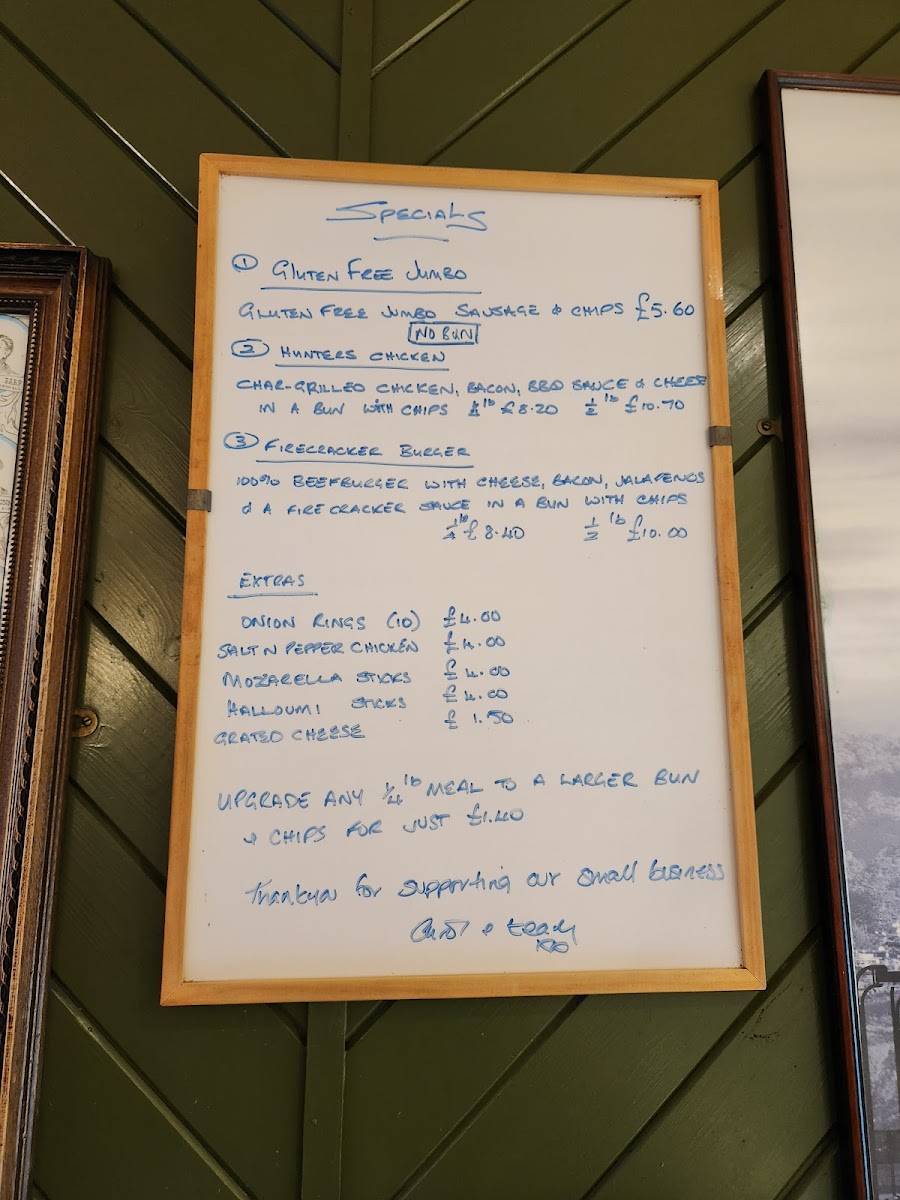 SPECIALS
① GLUTEN FREE JUMBO
GLUTEN FREE JUMBO SAUSAGE & CHIPS £5.60
NO BUN
② HUNTERS CHICKEN
CHAR-GRILLED CHICKEN, BACON, BBQ SAUCE & CHEESE
IN A BUN WITH CHIPS ¼ lb £8.20 ½ lb £10.70
③ FIRECRACKER BURGER
100% BEEFBURGER WITH CHEESE, BACON, JALAPENOS
& A FIRECRACKER SAUCE IN A BUN WITH CHIPS
¼ lb £8.40 ½ lb £10.00
EXTRAS
ONION RINGS (10) £4.00
SALT N PEPPER CHICKEN £4.00
MOZARELLA STICKS £4.00
HALLOUMI STICKS £4.00
GRATED CHEESE £1.50
UPGRADE ANY ¼ lb MEAL TO A LARGER BUN
& CHIPS FOR JUST £1.40
Thankyou for supporting our small business
& team